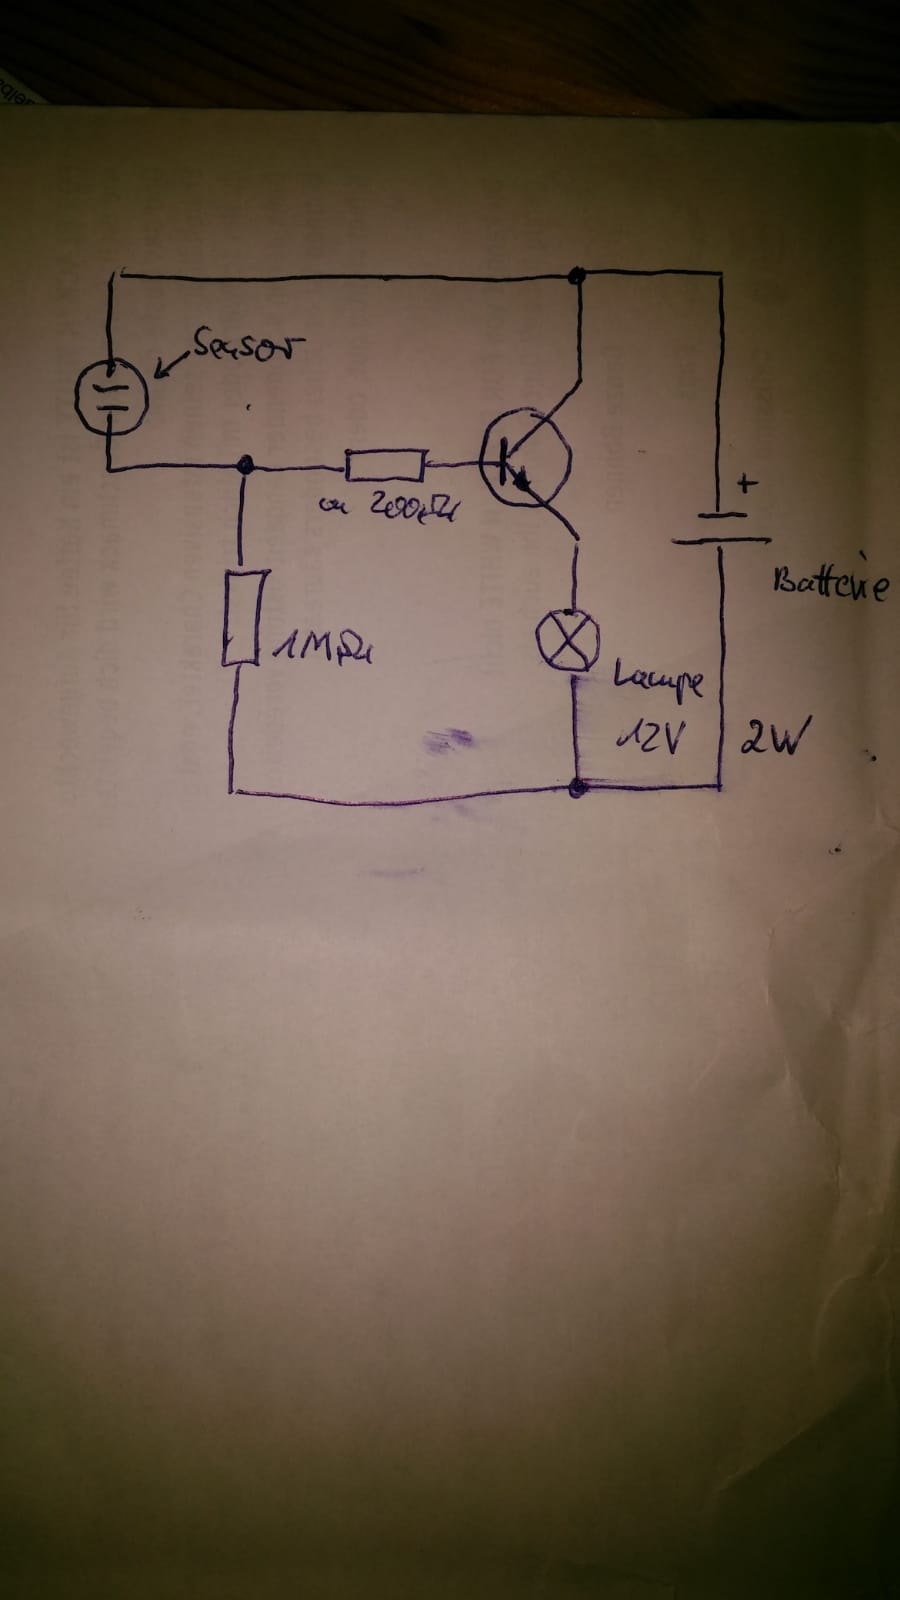 Sensor
ca 200Ω
1MΩ
+
Batterie
Lampe
12V 2W